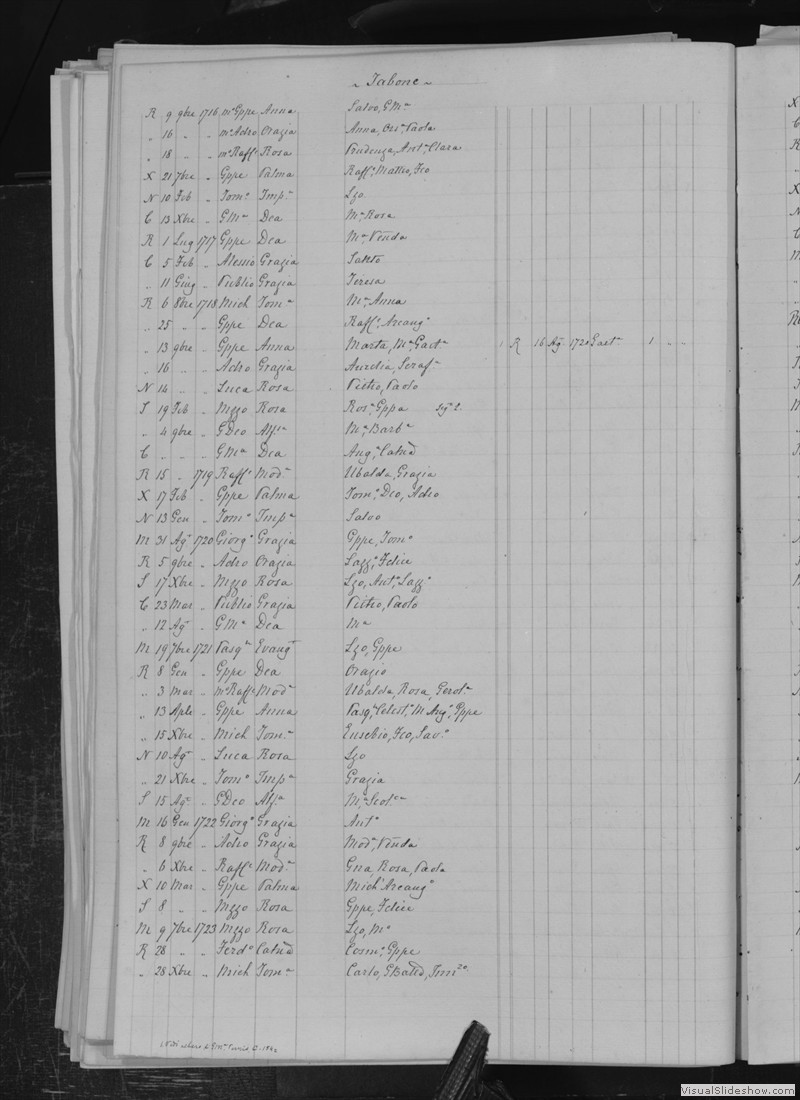 ~ Tabone ~
R 9 9bre 1716 mº Gppe Anna Salvo, GMª
„ 16 „ „ mº Adro Orazia Anna, Orsª, Paola
„ 18 „ „ mº Raffº Rosa Prudenza, Antª, Clara
X 21 7bre „ Gppe Palma Raffº, Matteo, Fco
N 10 Feb „ Tomº Impª Lzo
C 13 Xbre „ GMª Dea Mª Rosa
R 1 Lug 1717 Gppe Dea Mª Venda
C 5 Feb „ Alessio Grazia Santo
„ 11 Giug „ Publio Grazia Teresa
R 6 8bre 1718 Mich Tomª Mª Anna
„ 25 „ „ Gppe Dea Raffº, Arcangº
„ 13 9bre „ Gppe Anna Marta, Mª, Gaetª 1 R 16 Ag 1720 Gaetª 1 „ „
„ 16 „ „ Adro Grazia Aurelia, Serafª
N 14 „ „ Luca Rosa Pietro, Paolo
S 19 Feb „ Mzzo Rosa Rosª, Gppa
„ 4 9bre „ GDeo Alfª Mª, Barbª
C „ „ „ GMª Dea Angª, Catnª
R 15 „ 1719 Raffº Modª Ubalda, Grazia
X 17 Feb „ Gppe Palma Tomº, Deo, Adro
N 13 Gen „ Tomº Impª Salvo
M 31 Agº 1720 Giorgº Grazia Gppe, Tomº
R 5 9bre „ Adro Orazia Lazzº, Felice
S 17 Xbre „ Mzzo Rosa Lzo, Antº, Lazzº
C 23 Mar „ Publio Grazia Pietro, Paolo
„ 12 Agº „ GMª Dea Mª
M 19 7bre 1721 Pasqº Evangª Lzo, Gppe
R 8 Gen „ Gppe Dea Orazio
„ 3 Mar „ mº Raffº Modª Ubalda, Rosa, Gerolª
„ 13 Aple „ Gppe Anna Pasqº, Celestº, M Angº, Gppe
„ 15 Xbre „ Mich Tomª Eusebio, Fco, Savº
N 10 Agº „ Luca Rosa Lzo
„ 21 Xbre „ Tomº Impª Grazia
S 15 Agº „ GDeo Alfª Mª, Scolcª
M 16 Gen 1722 Giorgº Grazia Antº
R 8 9bre „ Adro Grazia Modª, Venda
„ 6 Xbre „ Raffº Modª Gna, Rosa, Paola
X 10 Mar „ Gppe Palma Mich Arcangº
S 8 „ „ Mzzo Rosa Gppe, Felice
M 9 7bre 1723 Mzzo Rosa Lzo, Mº
R 28 „ „ Ferdº Catnª Cosmº, Gppe
„ 28 Xbre „ Mich Tomª Carlo, GBatta
VisualSlideshow.com